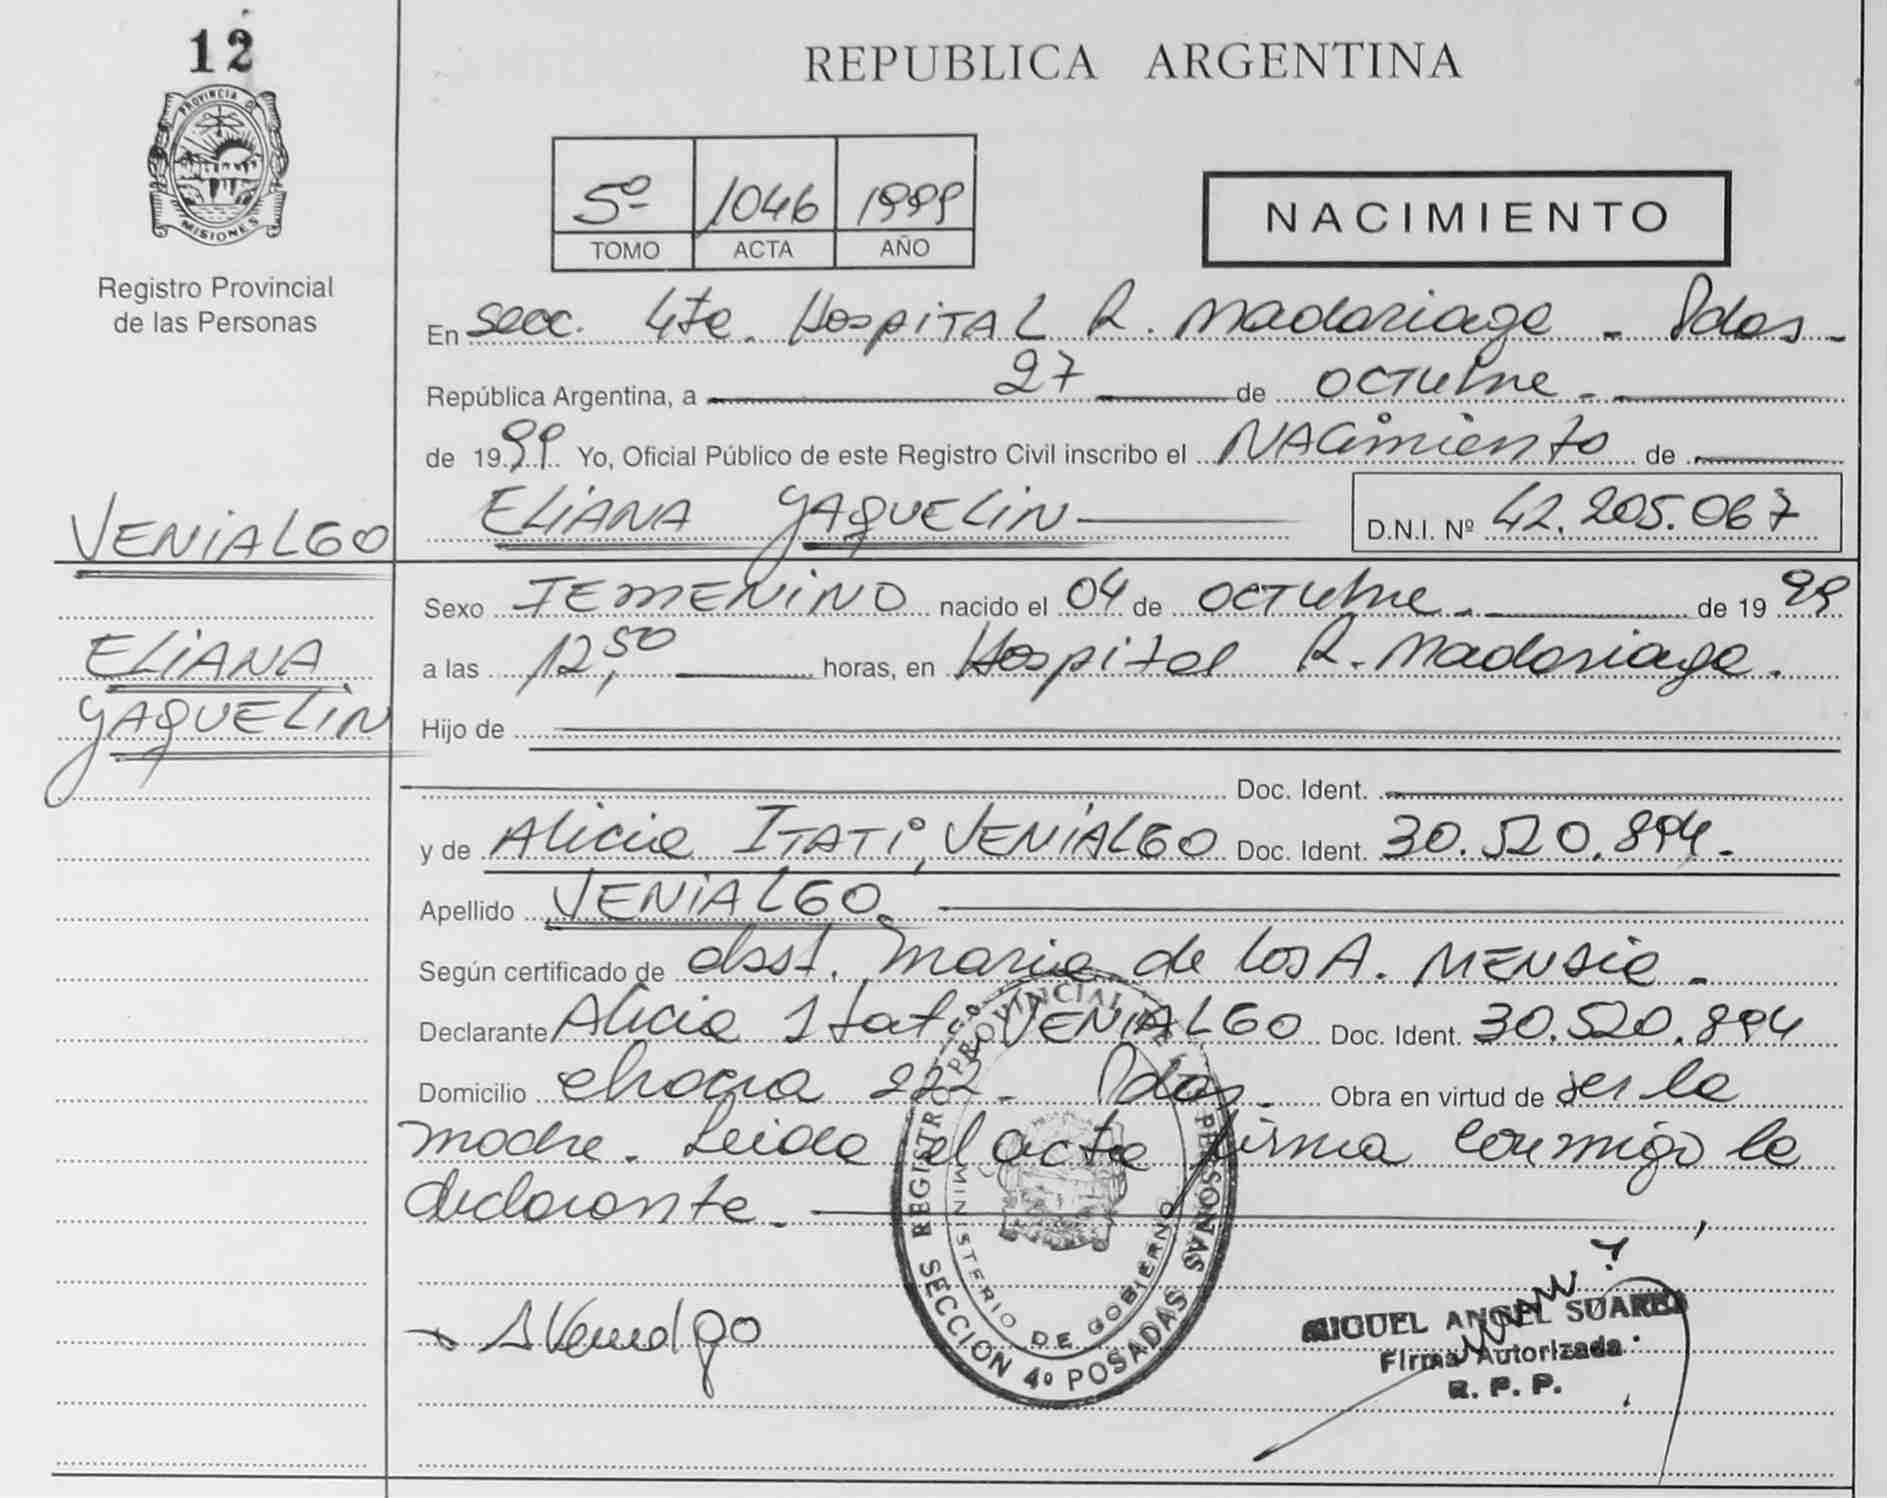 12
PROVINCIA DE
MISIONES
Registro Provincial
de las Personas
VENIALGO
ELIANA
YAQUELIN
REPUBLICA ARGENTINA
5º 1046 1999
TOMO ACTA AÑO
NACIMIENTO
En Secc. 4ta. Hospital R. Madariaga - Pdas -
República Argentina, a 27 de octubre -
de 1999 Yo, Oficial Público de este Registro Civil inscribo el NACimiento de
ELIANA YAQUELIN D.N.I. Nº 42.205.067
Sexo FEMENINO nacido el 04 de octubre - de 1999
a las 12,50 horas, en Hospital R. Madariaga.
Hijo de
Doc. Ident.
y de Alicia ITATI, VENIALGO Doc. Ident. 30.520.894.-
Apellido VENIALGO.
Según certificado de obst. Maria de los A. -
Declarante Alicia Itati VENIALGO Doc. Ident. 30.520.894
Domicilio 222 - Pdas. Obra en virtud de ser la
madre. Leida el acta firma conmigo la
declarante. -
REGISTRO PROVINCIAL DE LAS PERSONAS
MINISTERIO DE GOBIERNO
SECCION 4º POSADAS
AVenialgo
MIGUEL ANGEL SUAREZ
Firma Autorizada
R. P. P.